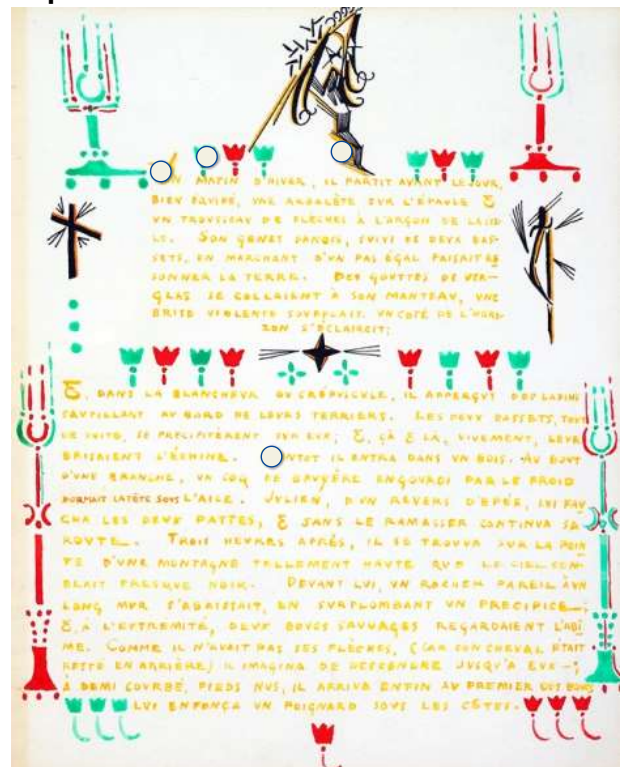 MATIN D'HIVER, IL PARTIT AVANT LE JOUR,
BIEN ÉQVIPÉ, VNE ARBALÈTE SVR L'ÉPAVLE &
VN TROVSSEAV DE FLÈCHES À L'ARÇON DE LA SEL
LE. SON GENET DANOIS, SVIVI DE DEVX BAS-
SETS, EN MARCHANT D'VN PAS ÉGAL FAISAIT RE
SONNER LA TERRE. DES GOVTTES DE VER-
GLAS SE COLLAIENT À SON MANTEAV, VNE
BRISE VIOLENTE SOVFFLAIT. VN COTÉ DE L'HORI-
ZON S'ÉCLAIRCIT;
&, DANS LA BLANCHEVR DV CRÉPVSCVLE, IL APPERÇVT DES LAPINS
SAVTILLANT AV BORD DE LEVRS TERRIERS. LES DEVX BASSETS, TOVT
DE SVITE, SE PRÉCIPITÈRENT SVR EVX; &, ÇÀ & LÀ, VIVEMENT, LEVR
BRISAIENT L'ÉCHINE. IL ENTRA DANS VN BOIS. AV BOVT
D'VNE BRANCHE, VN COQ DE BRVYÈRE ENGOVRDI PAR LE FROID
DORMAIT LA TÊTE SOVS L'AILE. JVLIEN, D'VN REVERS D'ÉPÉE, LVI FAV
CHA LES DEVX PATTES, & SANS LE RAMASSER CONTINVA SA
ROVTE. TROIS HEVRES APRÈS, IL SE TROVVA SVR LA POIN
TE D'VNE MONTAGNE TELLEMENT HAVTE QVE LE CIEL SEM-
BLAIT PRESQVE NOIR. DEVANT LVI, VN ROCHER PAREIL À VN
LONG MVR S'ABAISSAIT, EN SVRPLOMBANT VN PRÉCIPICE;
&, À L'EXTRÉMITÉ, DEVX BOVCS SAVVAGES REGARDAIENT L'ABÎ
ME. COMME IL N'AVAIT PAS SES FLÈCHES, (CAR SON CHEVAL ÉTAIT
RESTÉ EN ARRIÈRE) IL IMAGINA DE DESCENDRE JVSQV'À EVX;
À DEMI COVRBÉ, PIEDS NVS, IL ARRIVA ENFIN AV PREMIER DES BOVCS
LVI ENFONÇA VN POIGNARD SOVS LES CÔTES.